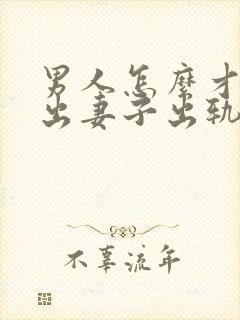 男人怎麽才
出妻子出轨
不辜流年